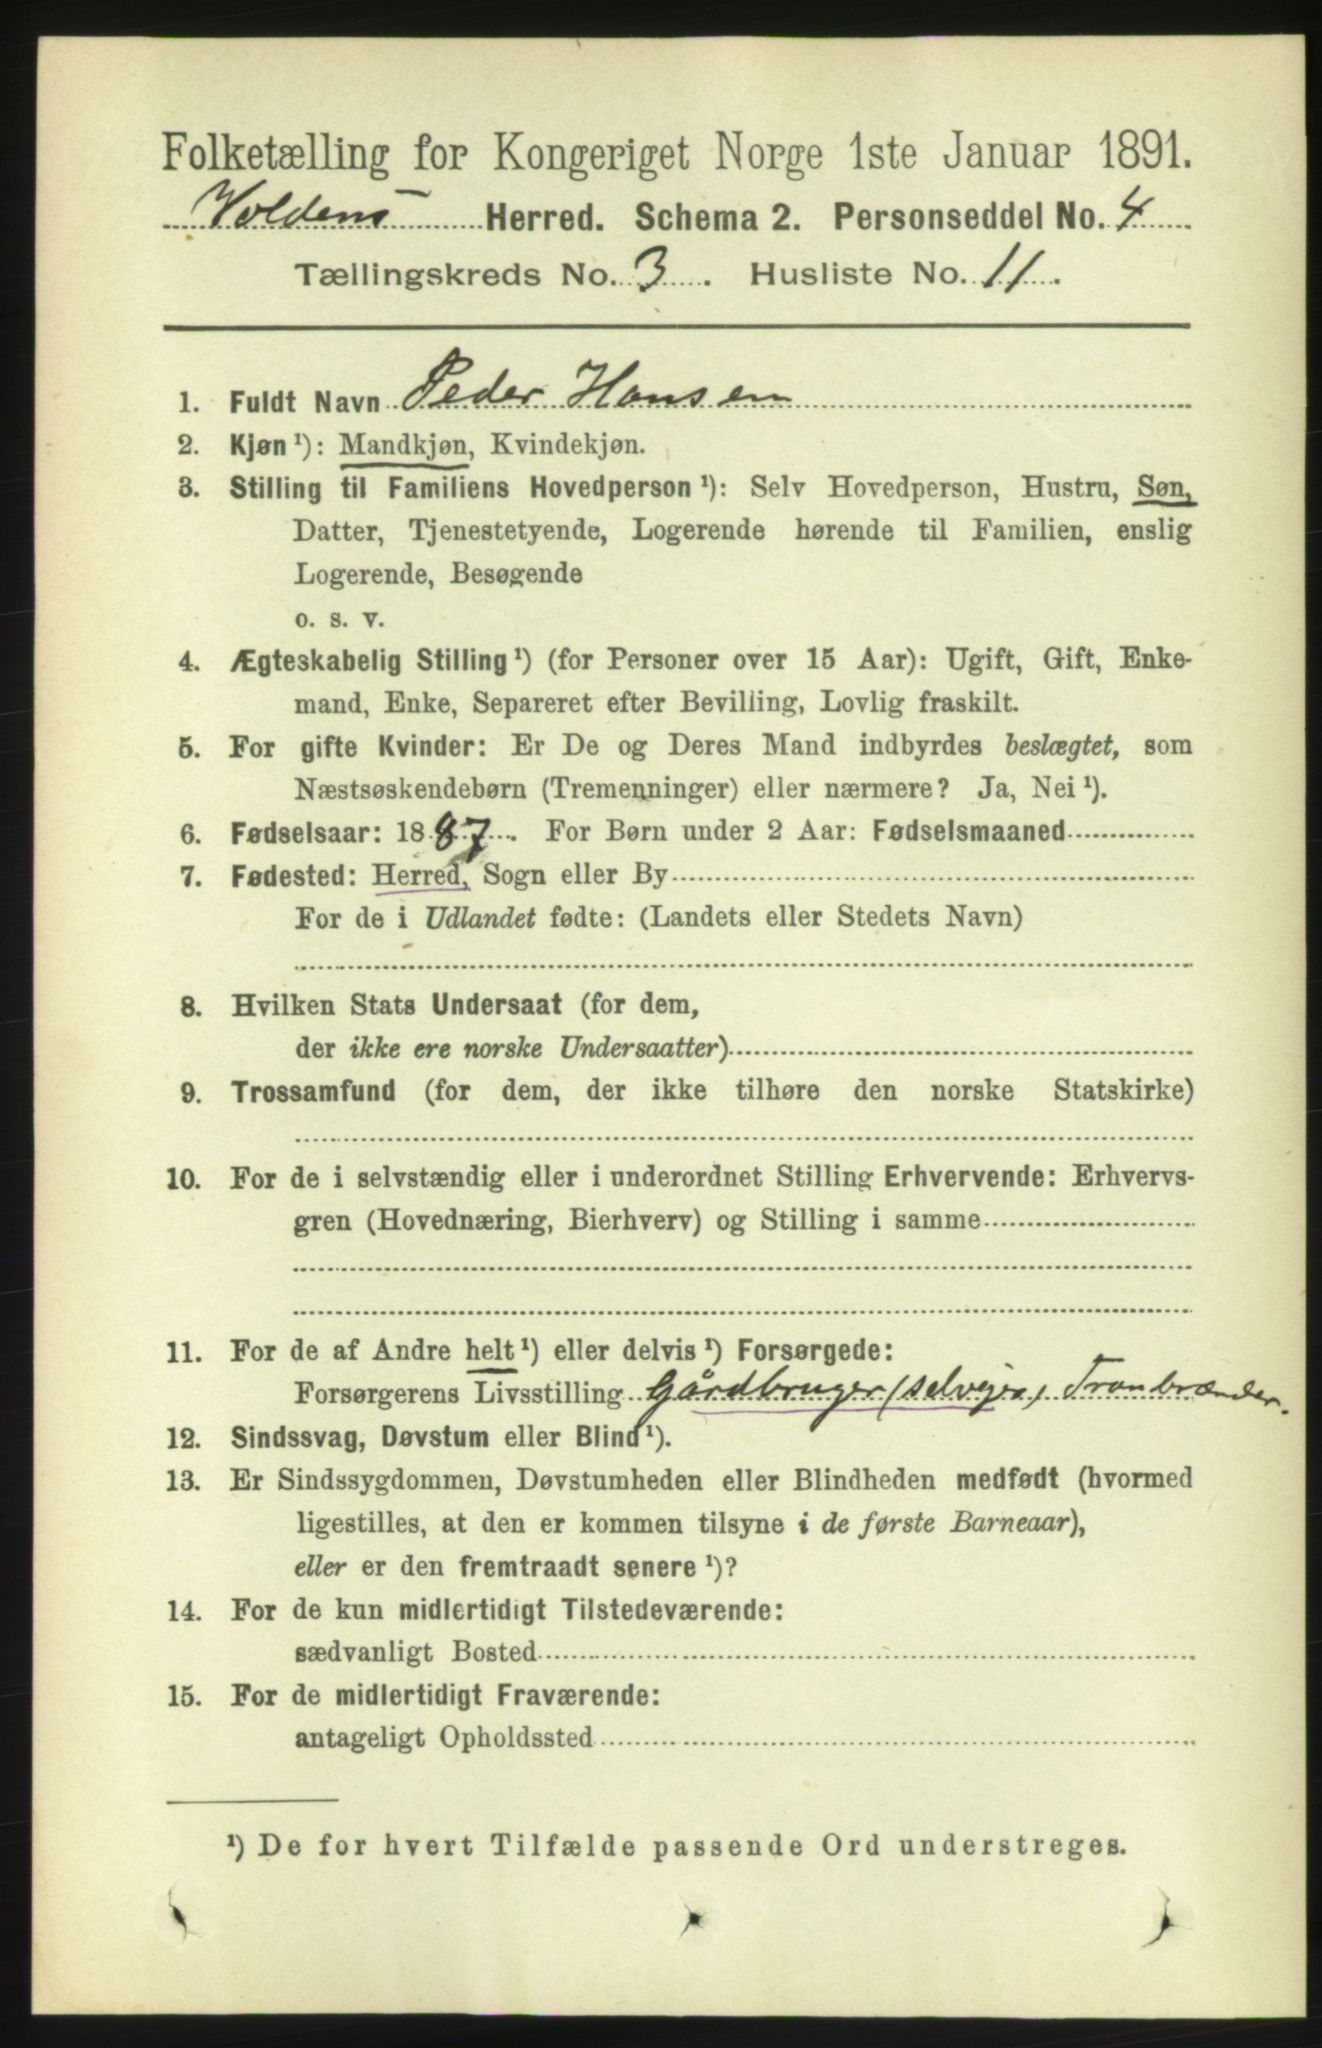 Folketælling for Kongeriget Norge 1ste Januar 1891.
Voldens Herred. Schema 2. Personseddel No. 4
Tællingskreds No. 3. Husliste No. 11.
1. Fuldt Navn Peder Hansen
2. Kjøn¹): Mandkjøn, Kvindekjøn.
3. Stilling til Familiens Hovedperson¹): Selv Hovedperson, Hustru, Søn,
Datter, Tjenestetyende, Logerende hørende til Familien, enslig
Logerende, Besøgende
o. s. v.
4. Ægteskabelig Stilling¹) (for Personer over 15 Aar): Ugift, Gift, Enke-
mand, Enke, Separeret efter Bevilling, Lovlig fraskilt.
5. For gifte Kvinder: Er De og Deres Mand indbyrdes beslægtet, som
Næstsøskendebørn (Tremenninger) eller nærmere? Ja, Nei¹).
6. Fødselsaar: 1887. For Børn under 2 Aar: Fødselsmaaned
7. Fødested: Herred, Sogn eller By
For de i Udlandet fødte: (Landets eller Stedets Navn)
8. Hvilken Stats Undersaat (for dem,
der ikke ere norske Undersaatter)
9. Trossamfund (for dem, der ikke tilhøre den norske Statskirke)
10. For de i selvstændig eller i underordnet Stilling Erhvervende: Erhvervs-
gren (Hovednæring, Bierhverv) og Stilling i samme
11. For de af Andre helt¹) eller delvis¹) Forsørgede:
Forsørgerens Livsstilling Gårdbruger (selvejer), Tranbrænder.
12. Sindssvag, Døvstum eller Blind¹).
13. Er Sindssygdommen, Døvstumheden eller Blindheden medfødt (hvormed
ligestilles, at den er kommen tilsyne i de første Barneaar),
eller er den fremtraadt senere¹)?
14. For de kun midlertidigt Tilstedeværende:
sædvanligt Bosted
15. For de midlertidigt Fraværende:
antageligt Opholdssted
¹) De for hvert Tilfælde passende Ord understreges.